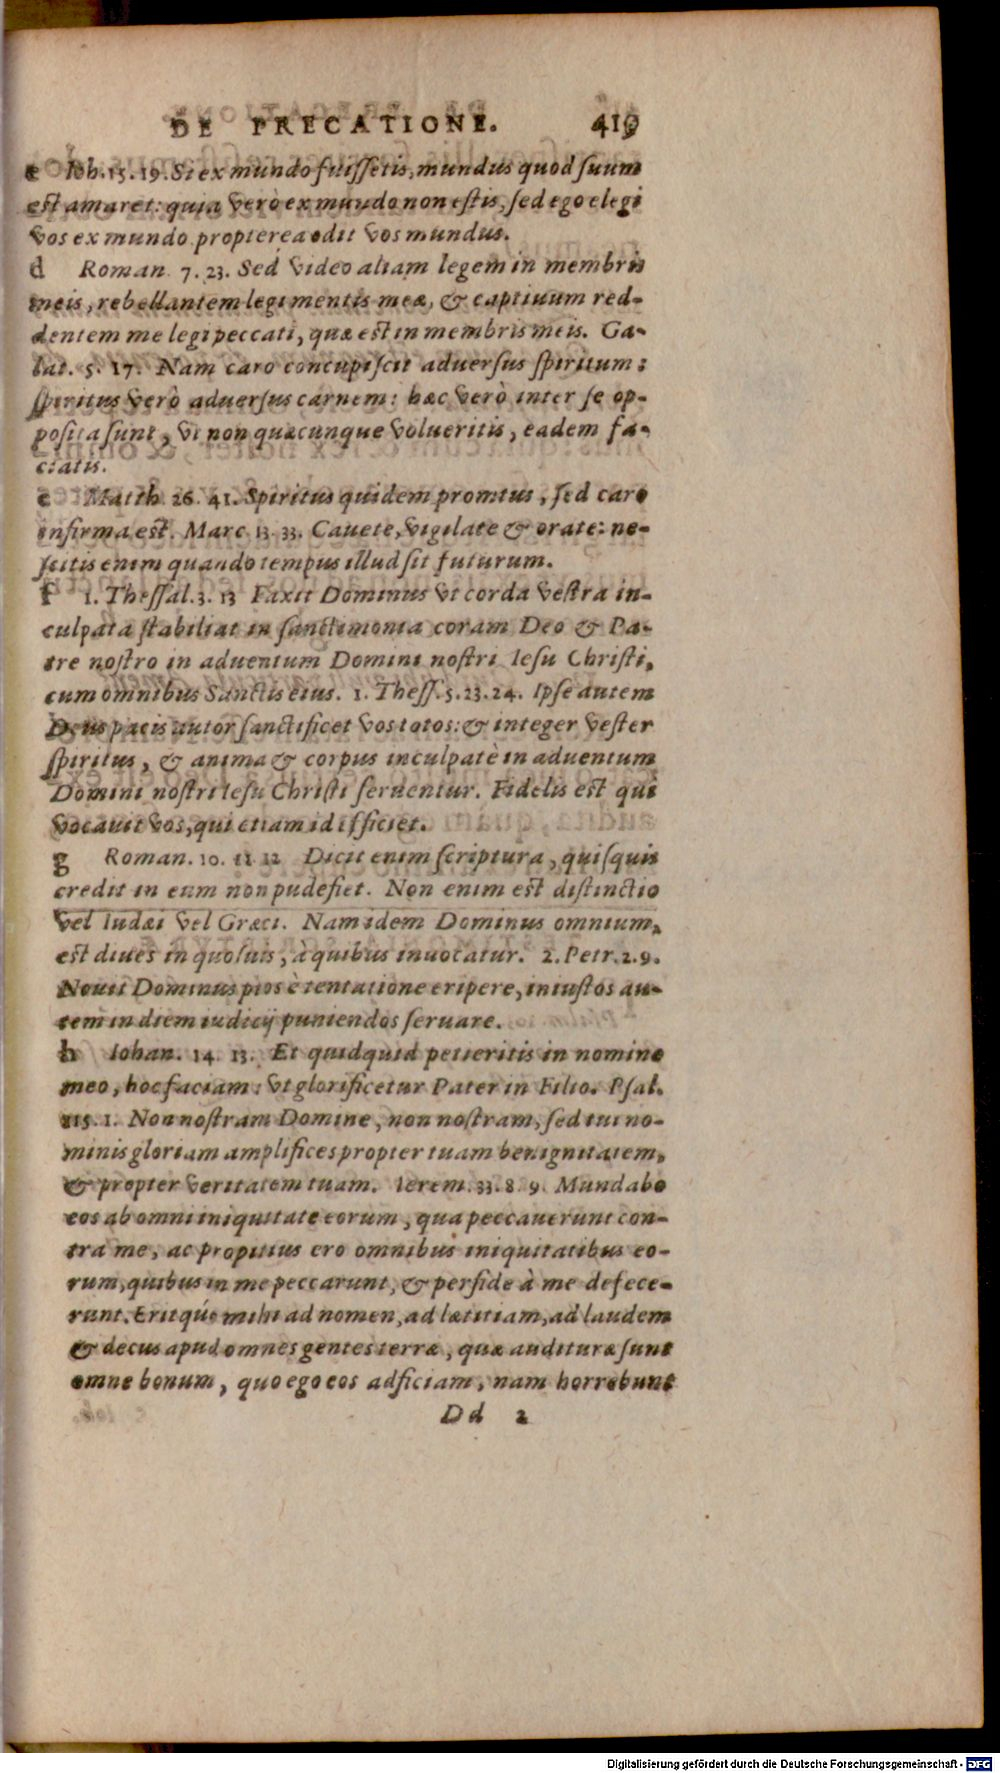 DE PRECATIONE. 419
c Ioh. 15. 19. Si ex mundo fuiſſetis, mundus quod ſuum
est amaret: quia verò ex mundo non eſtis, ſed ego elegi
vos ex mundo propterea odit vos mundus.
d Roman. 7. 23. Sed video aliam legem in membris
meis, rebellantem legi mentis meæ, & captiuum red-
dentem me legi peccati, quæ est in membris meis. Ga-
lat. 5. 17. Nam caro concupiſcit aduerſus ſpiritum:
ſpiritus verò aduerſus carnem: hæc verò inter ſe op-
poſita ſunt, vt non quæcunque volueritis, eadem fa-
ciatis.
e Matth. 26. 41. Spiritus quidem promtus, ſed caro
infirma est. Marc. 13. 33. Cauete, vigilate & orate: ne-
ſcitis enim quando tempus illud ſit futurum.
f 1. Theſſal. 3. 13 Faxit Dominus vt corda veſtra in-
culpata ſtabiliat in ſanctimonia coram Deo & Pa-
tre noſtro in aduentum Domini noſtri Ieſu Chriſti,
cum omnibus Sanctis eius. 1. Theſſ. 5. 23. 24. Ipſe autem
Deus pacis autor ſanctificet vos totos: & integer veſter
ſpiritus, & anima & corpus inculpatè in aduentum
Domini noſtri Ieſu Chriſti ſeruentur. Fidelis est qui
vocauit vos, qui etiam id efficiet.
g Roman. 10. 11. 12 Dicit enim ſcriptura, quiſquis
credit in eum non pudefiet. Non enim est diſtinctio
vel Iudæi vel Græci. Nam idem Dominus omnium,
est diues in quoſuis, à quibus inuocatur. 2. Petr. 2. 9.
Nouit Dominus pios è tentatione eripere, iniuſtos au-
tem in diem iudicij puniendos ſeruare.
h Iohan. 14. 13. Et quidquid petieritis in nomine
meo, hoc faciam: vt glorificetur Pater in Filio. Pſal.
115. 1. Non noſtram Domine, non noſtram, ſed tui no-
minis gloriam amplifices propter tuam benignitatem,
& propter veritatem tuam. Ierem. 33. 8. 9. Mundabo
eos ab omni iniquitate eorum, qua peccauerunt con-
tra me, ac propitius ero omnibus iniquitatibus eo-
rum, quibus in me peccarunt, & perfide à me defece-
runt. Eritqúe mihi ad nomen, ad lætitiam, ad laudem
& decus apud omnes gentes terræ, quæ audituræ ſunt
omne bonum, quo ego eos adficiam, nam horrebunt
Dd 2
Digitalisierung gefördert durch die Deutsche Forschungsgemeinschaft - DFG